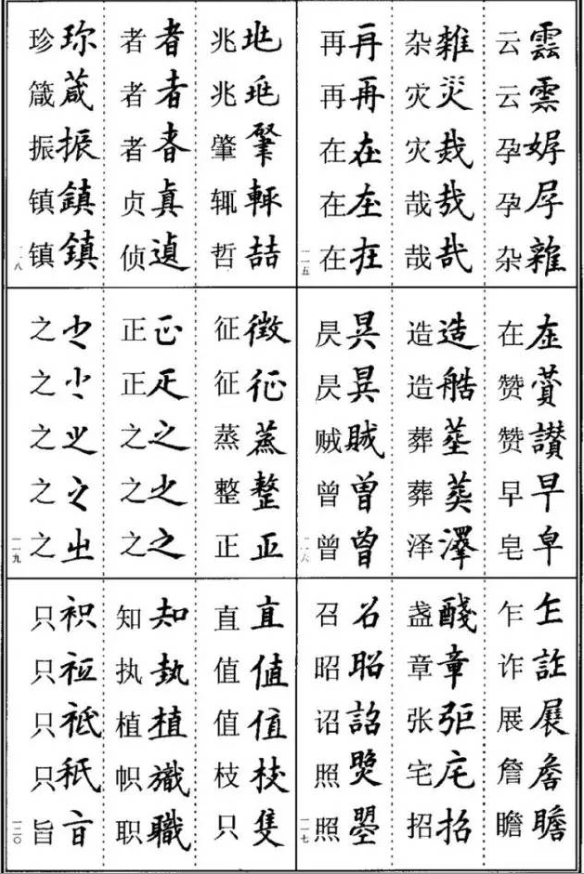 云雲云孕孕杂雜
杂雜灾災灾烖哉哉哉哉
再再再再在在在在
一一五
在在赞賛赞讃早早皂皁
造造造艁葬塟葬葬泽澤
昃昃贼賊曾曽曾曾
一一六
乍诈詐展展詹詹瞻瞻
盏醆章章张宅招招
召召昭昭诏詔照照曌
一一七
兆兆肇肇辄輒哲喆
者者者者者贞真侦遉
珍珎箴葴振振镇鎮镇鎮
一一八
征徵征征蒸蒸整整正正
正正之之之之之
之之之之之㞢
一一九
直直值値值値枝只隻
知知执執植植帜职職
只只只祗只秖旨
一二〇